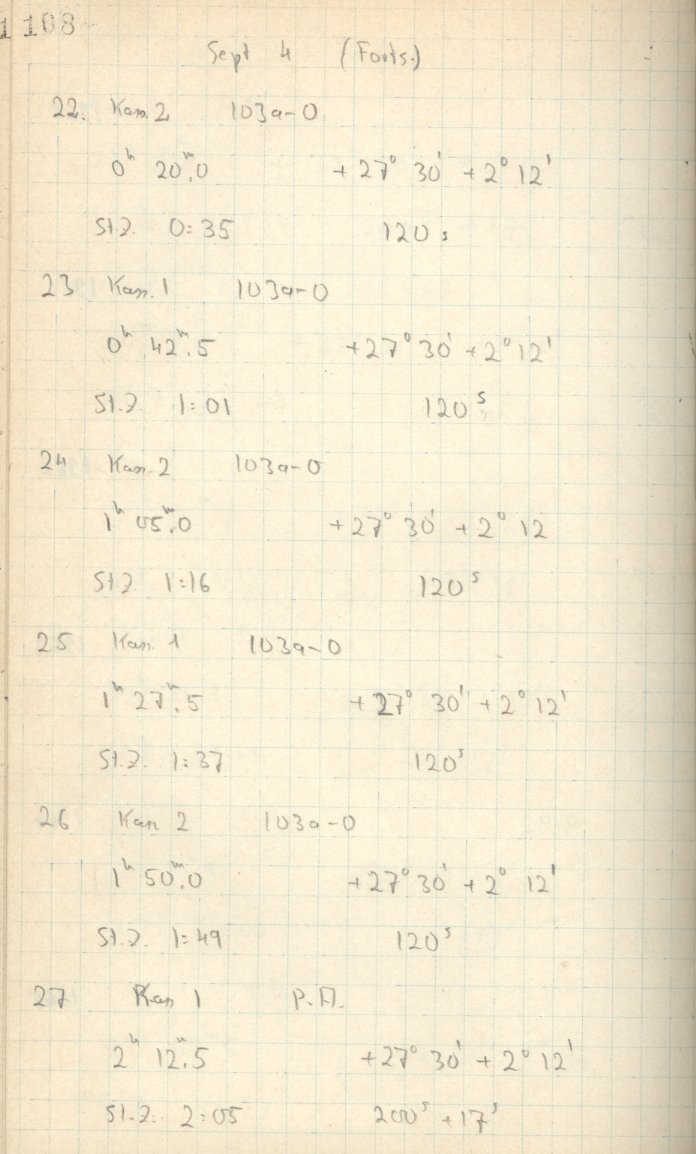 1108
Sept 4 (Forts.)
22. Kam. 2 103a-O
0ʰ 20ᵐ.0 +27° 30' +2° 12'
St.Z. 0:35 120 s
23 Kam. 1 103a-O
0ʰ 42ᵐ.5 +27° 30' +2° 12'
St.Z. 1:01 120ˢ
24 Kam. 2 103a-O
1ʰ 05ᵐ.0 +27° 30' +2° 12
St.Z 1:16 120ˢ
25 Kam. 1 103a-O
1ʰ 27ᵐ.5 +27° 30' +2° 12'
St.Z. 1:37 120ˢ
26 Kam 2 103a-O
1ʰ 50ᵐ.0 +27° 30' +2° 12'
St.Z. 1:49 120ˢ
27 Kam 1 P.M.
2ʰ 12ᵐ.5 +27° 30' +2° 12'
St.Z. 2:05 200ˢ +17ˢ